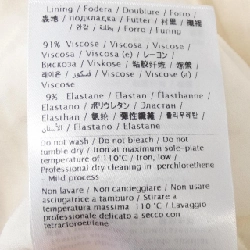 Lining / Fodera / Doublure / Forro /
裏地 / подкладка / Futter / 村里 /
/ Forro / Furing
91% Viscose / Viscose / Viscose /
Viscosa / Viscose (e) / レーヨン /
Вискоза / Viskose / 粘胶纤维 /
/ Viscosa / Viskose
9% Elastane / Elastan / Elasthanne /
Elastano / ポリウレタン / Эластан /
Elasthan / 氨纶 / 彈性纖維 / 폴리우레탄
/ Elastano / Elastan
Do not wash / Do not bleach / Do not
tumble dry / Iron at maximum sole-plate
temperature of 110°C / Iron, low /
Professional dry cleaning in perchlorethene
- Mild process
Non lavare / Non candeggiare / Non usare
asciugatrice a tamburo / Stirare a
temperatura massima 110°C / Lavaggio
professionale delicato a secco con
tetracloroetilene